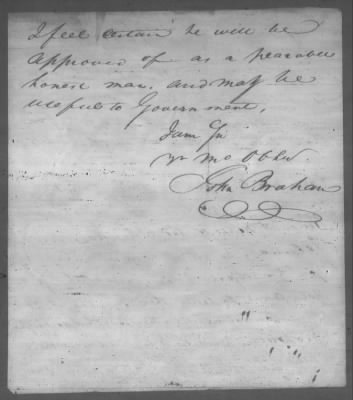 I feel certain he will be
approved of as a peaceable
honest man. and may be
useful to Government.
I am Sir
yr Mo Obt
John Braham